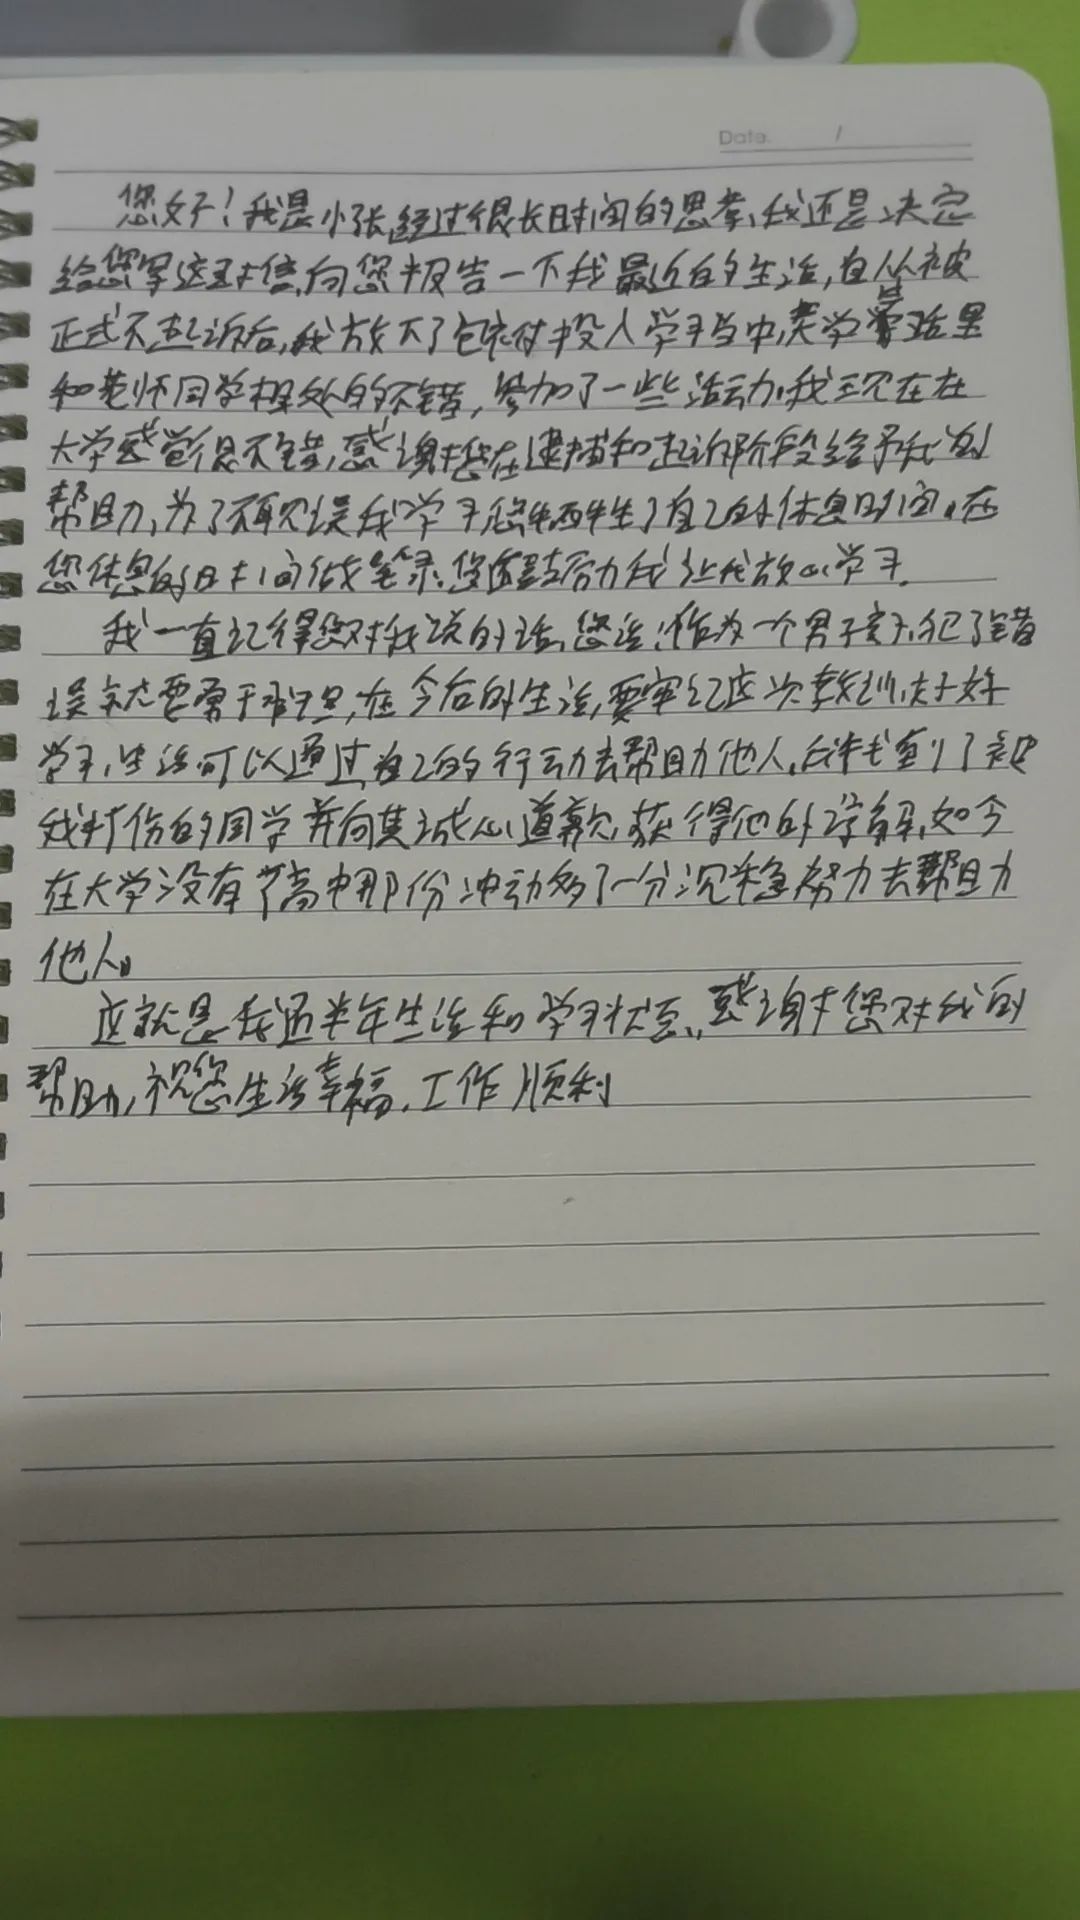 Date. /
您好！我是小张,经过很长时间的思考,我还是决定
给您写这封信,向您报告一下我最近的生活,自从被
正式不起诉后,我放下了包袱付投入学习当中,大学生活里
和老师同学相处的不错,参加了一些活动,我现在在
大学感觉很不错,感谢您在逮捕和起诉阶段给予我的
帮助,为了不耽误我学习您牺牲了自己的休息时间,在
您休息的时间做笔录,您鼓励我让我放心学习.
我一直记得您对我说的话,您说:作为一个男子家,犯了错
误就要勇于承担,在今后的生活,要牢记这次教训,好好
学习,生活可以通过自己的行动去帮助他人,我找到了被
我打伤的同学并向其诚心道歉,获得他的谅解,如今
在大学没有了高中那份冲动多了一分沉稳努力去帮助
他人。
这就是我近半年生活和学习状态,感谢您对我的
帮助,祝您生活幸福,工作顺利